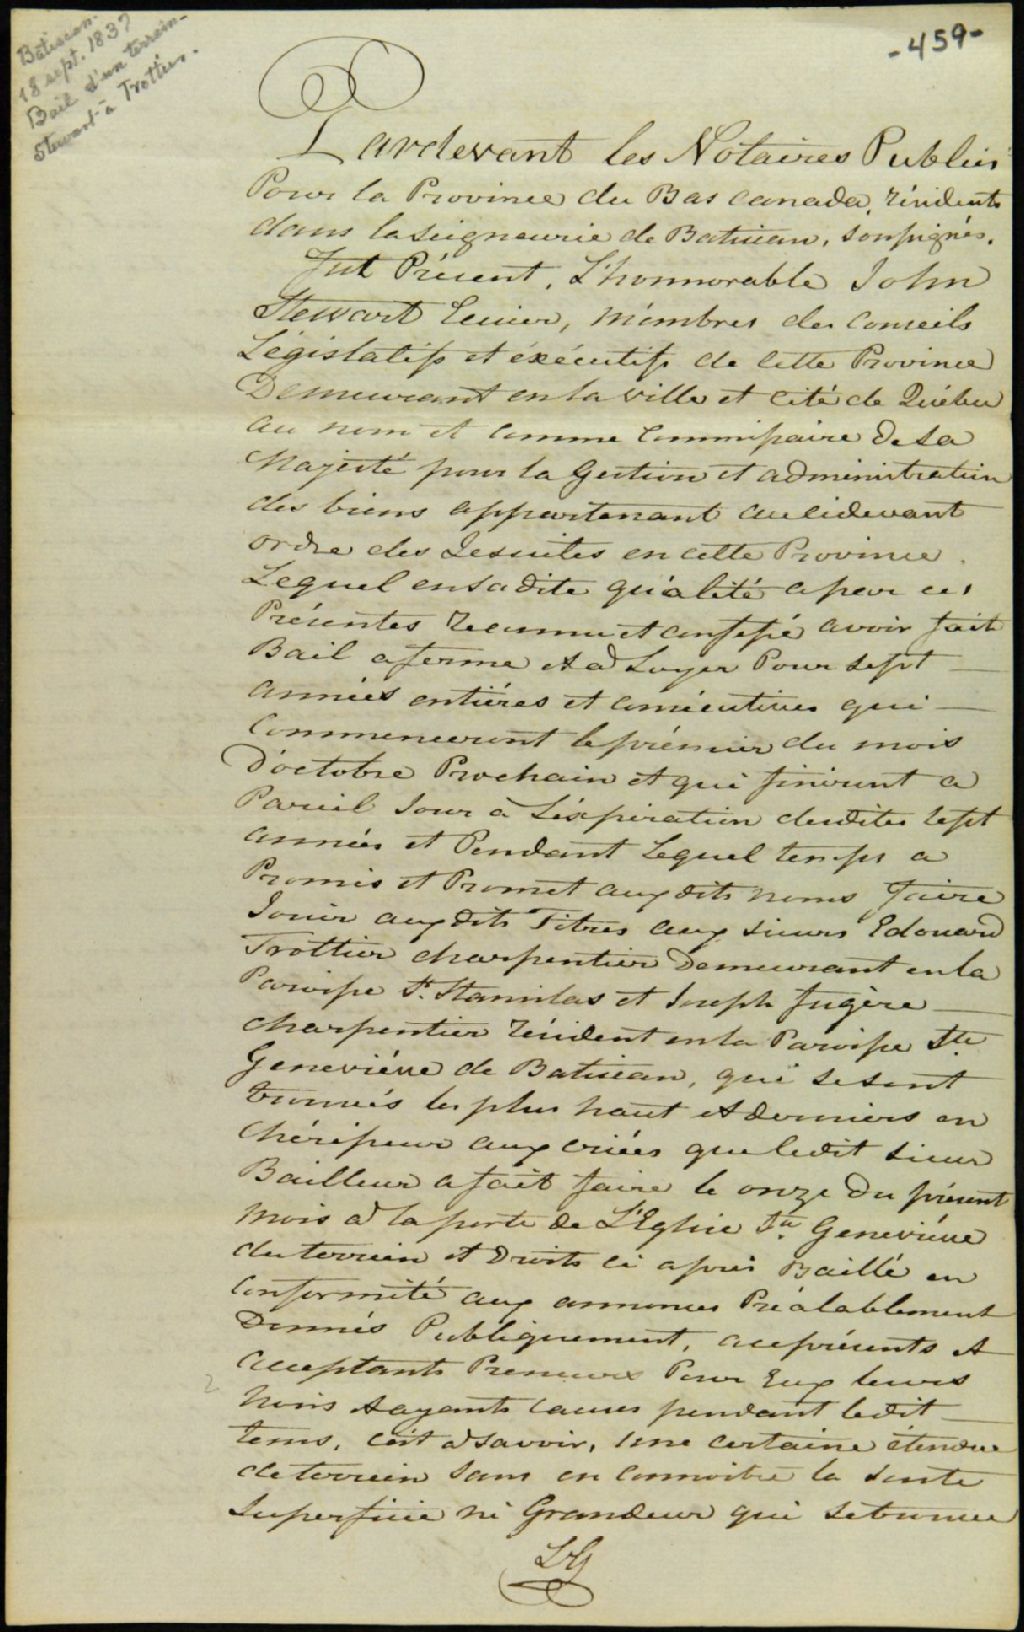 Batiscan.
18 sept. 1837
Bail d'un terrein-
Stewart à Trottier.
-459-
Pardevant les Notaires Publics
Pour la Province du Bas Canada, résidents
dans la seigneurie de Batiscan, soussignés.
Fut Présent, L'honnorable John
Stewart Ecuier, mémbres des Conseils
Législatifs et éxécutifs de cette Province
Demeurant en la ville et cité de Québec
au nom et comme Commissaire de Sa
Majesté pour la Gestion et administration
des biens appartenant au cidevant
ordre des Jesuites en cette Province.
Lequel en sadite qualité a par ces
Présentes reconnu et confessé avoir fait
Bail a ferme et à Loyer Pour sept
années entiéres et consécutives qui
Commenceront le prémier du mois
D'octobre Prochain et qui finiront a
Pareil Jour à L'éxpiration desdites sept
années et Pendant Lequel temps a
Promis et Promet auxdits noms faire
Jouir auxdits Titres aux sieurs Edouard
Trottier charpentier Demeurant en la
Paroisse St. Stanislas et Joseph Fugère
charpentier résident en la Paroisse Ste
Geneviéve de Batiscan, qui se sont
trouvés les plus haut et derniers en
chérisseur aux criées que ledit sieur
Bailleur a fait faire le onze du présent
mois à la porte de L'Eglise Ste. Geneviéve
du terrein et Droits ci après Baillé en
Conformité aux annonces Préalablement
Donnés Publiquement, a ce présents et
acceptants Preneurs Pour Eux leurs
hoirs et ayants causes pendant ledit
tems, c'est à savoir, une certaine étendue
de terrein sans en connoitre la juste
Superficie ni Grandeur qui se trouve
2
LG